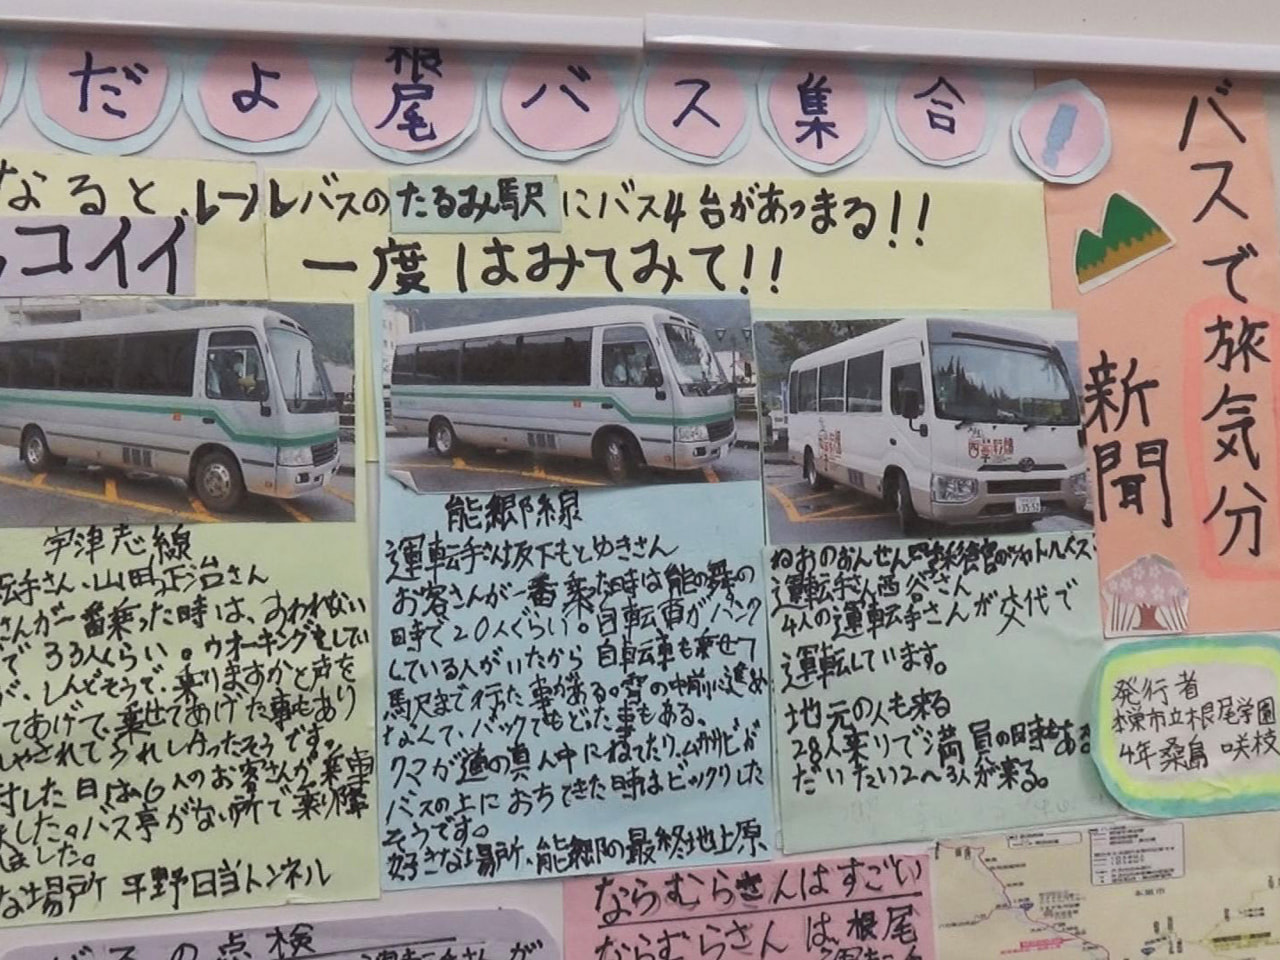 だよ根尾バス集合!
バスで旅気分
新聞
なると、レールバスのたるみ駅にバス4台があつまる!!
コイイ
一度はみてみて!!
宇津志線
転手さん、山田正治さん
さんが一番乗った時は、おわれない
で33人くらい。ウオーキングをしてい
が、しんどそうで、乗りますかと声を
てあげて、乗せてあげた事もあり
した日は6人のお客さんが乗車
ました。バス亭がない所で乗り降
ました。
な場所 平野日当トンネル
能郷線
運転手さん坂下もとゆきさん
お客さんが一番乗った時は能の舞の
時で20人ぐらい。自転車がパンク
している人がいたから自転車も乗せて
駅まで行った事がある。雪の中前に進め
なくて、バックでもどった事もある。
クマが道の真ん中にねてたり、ムササビが
バスの上におちてきた時はビックリした
そうです。
好きな場所、能郷の最終地上原
運転手さん西谷さん
4人の運転手さんが交代で
運転しています。
地元の人も来る
28人乗りで満員の時もある
だいたい2～3人が来る。
発行者
本巣市立根尾学園
4年桑島 咲枝
ならむらさんはすごい
ならむらさんは根尾
の点検